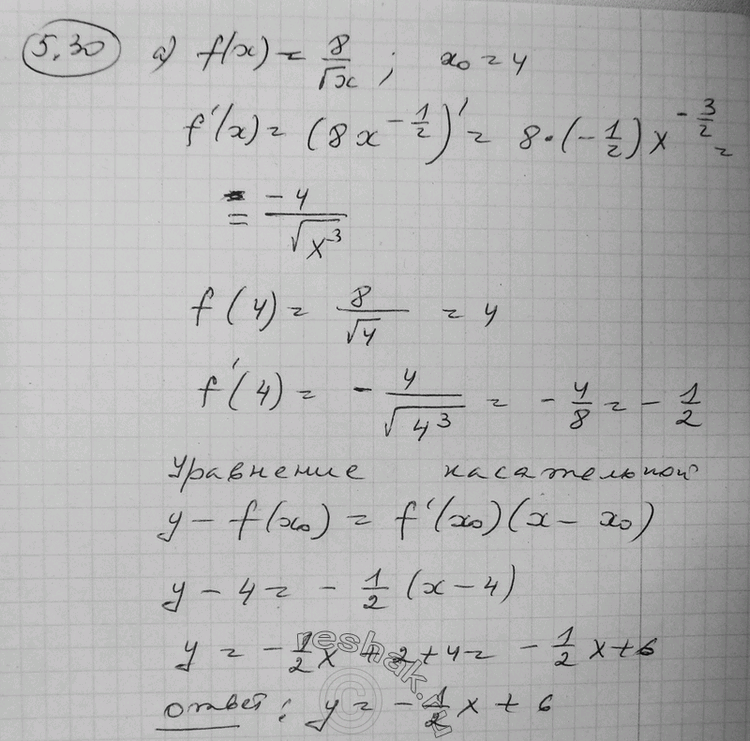 5.30 а) f(x) = 8/√x ; x₀ = 4
f'(x) = (8x^(-1/2))' = 8·(-1/2)x^(-3/2) =
= -4/√(x^-3)
f(4) = 8/√4 = 4
f'(4) = - 4/√(4^3) = - 4/8 = - 1/2
Уравнение касательной
y - f(x₀) = f'(x₀)(x - x₀)
y - 4 = - 1/2 (x - 4)
y = - 1/2 x + 2 + 4 = - 1/2 x + 6
ответ: y = - 1/2 x + 6
reshak.ru
©